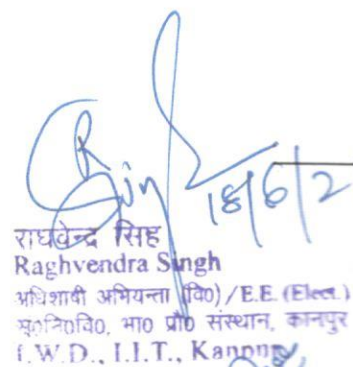 18/6/2
राघवेन्द्र सिंह
Raghvendra Singh
अधिशाषी अभियन्ता (वि0)/E.E. (Elect.)
भा0 प्रौ0 संस्थान, कानपुर
I.W.D., I.I.T., Kanpur